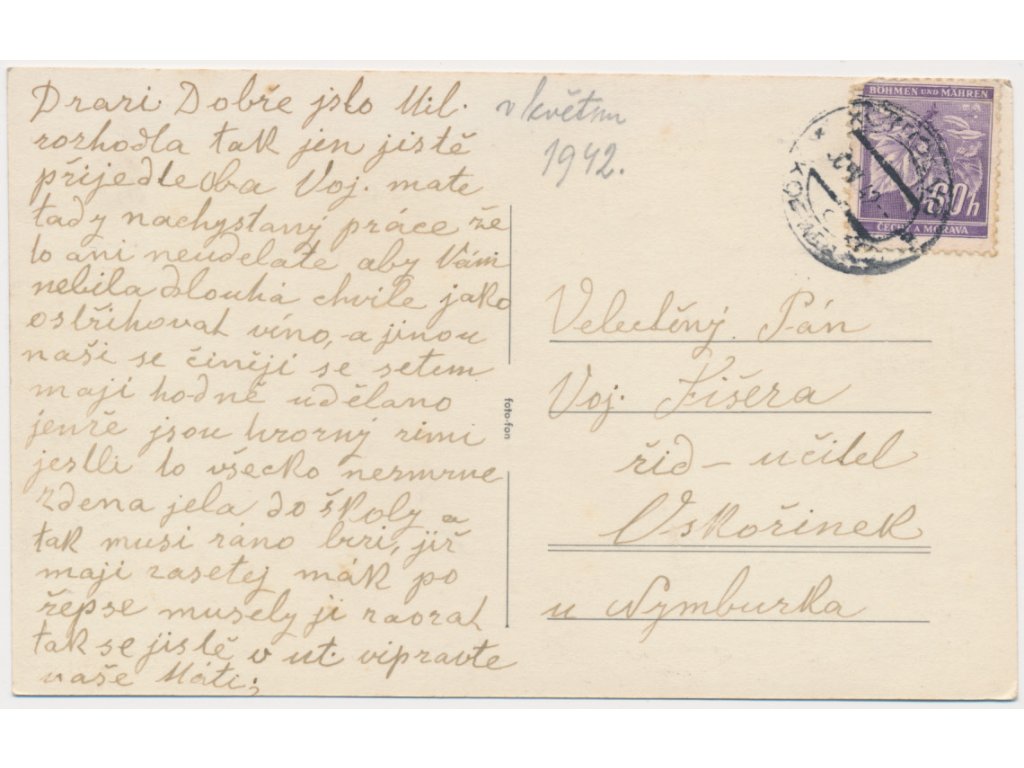 Drazi Dobře jslo Mil.
rozhodla tak jen jistě
přijedle oba Voj. mate
tady nachystaný práce že
to ani neudelate aby Vám
nebila dlouhá chvile jako
ostřihovat víno, a jinou
naši se činěji se setem
maji hodně udělano
jenže jsou hrozný zimi
jestli to všecko nezmrzne
zdena jela do školy a
tak musi ráno brzi, již
maji zasetej mák po
řepse musely ji zaorat
tak se jistě v ut. vipravte
vaše Máti;
v květnu
1942.
BÖHMEN UND MÄHREN
60h
ČECHY A MORAVA
Velectěný Pán
Voj. Fišera
řid-učitel
Vskořinek
u Nymburka
foto-fon